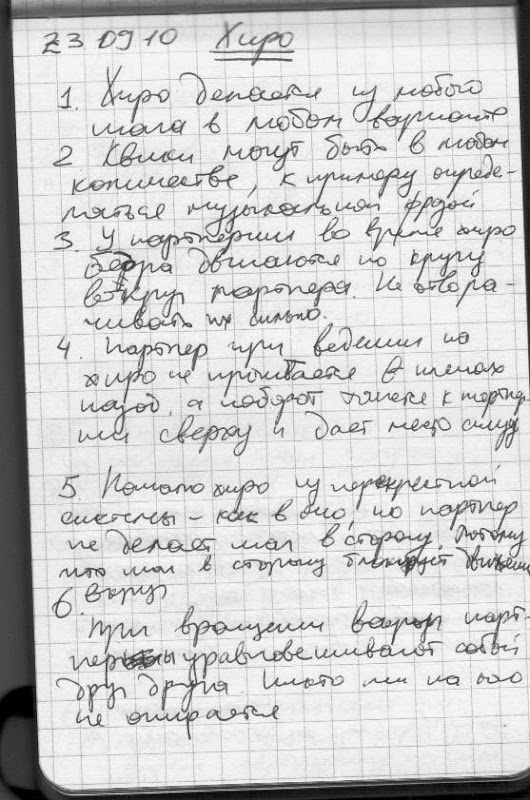 23 09 10 Хиро
1. Хиро делается из любого
шага в любом варианте
2 Квики могут быть в любом
количестве, к примеру опреде-
ляться музыкальной фразой
3. У партнерши во время хиро
бедра двигаются по кругу
вокруг партнера. Не отвора-
чивать их сильно.
4. Партнер при ведении на
хиро не прогибается в плечах
назад, а наоборот тянется к партнер-
ше сверху и дает место снизу
5. Начало хиро из перекрестной
системы – как в очо, но партнер
не делает шаг в сторону. Потому
что шаг в сторону блокирует движение
вокруг
6.
При вращении вокруг парт-
неры уравновешивают собой
друг друга. Никто ни на кого
не опирается